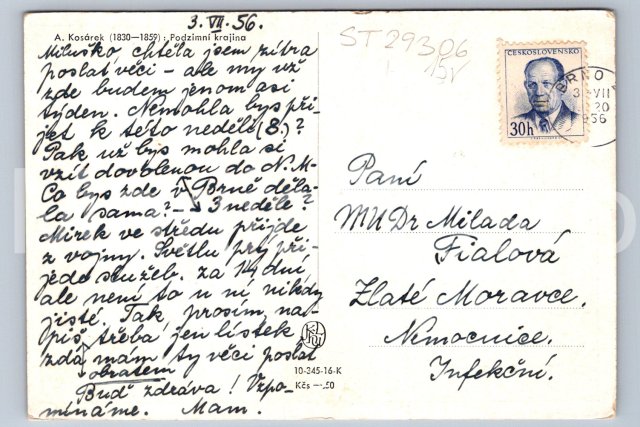 3. VII. 56.
A. Kosárek (1830—1859): Podzimní krajina
Miluško, chtěla jsem zítra
poslat věci – ale my už
zde budem jenom asi
týden. Nemohla bys při-
jet k této neděli (8.)?
Pak už bys mohla si
vzít dovolenou do N. M.
Co bys zde v Brně děla-
la sama? – 3 neděle?
Mirek ve středu přijde
z vojny. Světlu prý při-
jede služeb. za 14 dní,
ale není to u ní nikdy
jisté. Tak, prosím, na-
piš, třeba jen lístek
zda mám ty věci poslat
obratem
Buď zdráva! Vzpo-
mínáme. Mam.
10-345-16-K
Kčs —.50
ST 29306
15V
ČESKOSLOVENSKO
30h
BRNO
3. VII
20
956
Paní
MUDr Milada
Fialová
Zlaté Moravce.
Nemocnice.
Infekční.